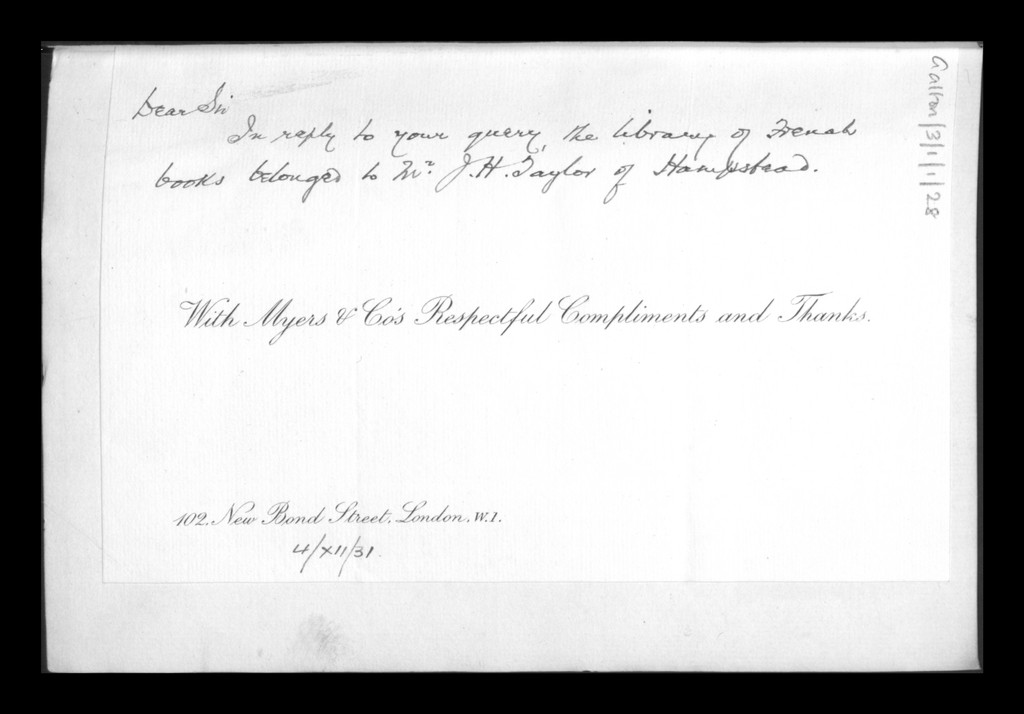 Dear Sir
In reply to your query, the library of French
books belonged to Mr. J. H. Taylor of Hampstead.
With Myers & Co's Respectful Compliments and Thanks.
102. New Bond Street. London. W.1.
4/XII/31.
Galton/3/1/1/28